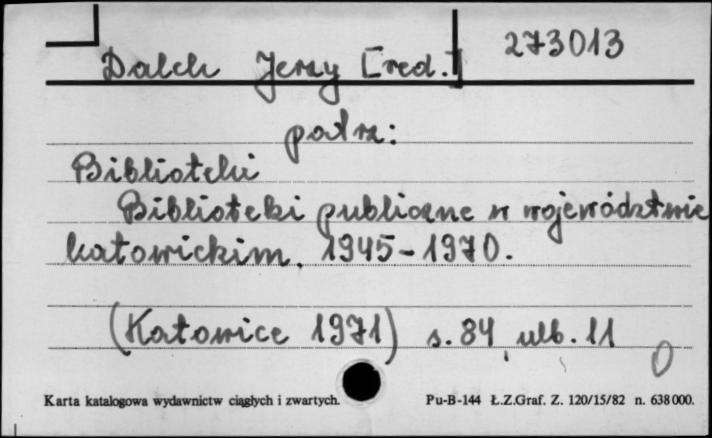 Dalch Jerzy [red.] 273013
patrz:
Biblioteki
Biblioteki publiczne w województwie
katowickim. 1945-1970.
(Katowice 1971) s. 84, ulb. 11
0
Karta katalogowa wydawnictw ciągłych i zwartych. Pu-B-144 Ł.Z.Graf. Z. 120/15/82 n. 638000.